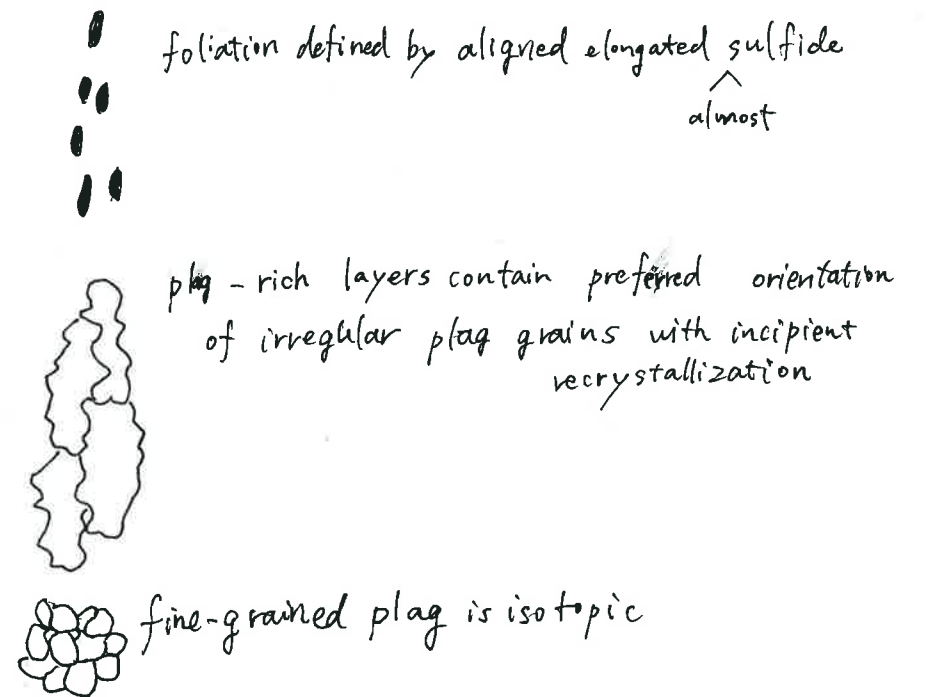 foliation defined by aligned elongated sulfide
almost
plag-rich layers contain preferred orientation
of irregular plag grains with incipient
recrystallization
fine-grained plag is isotopic